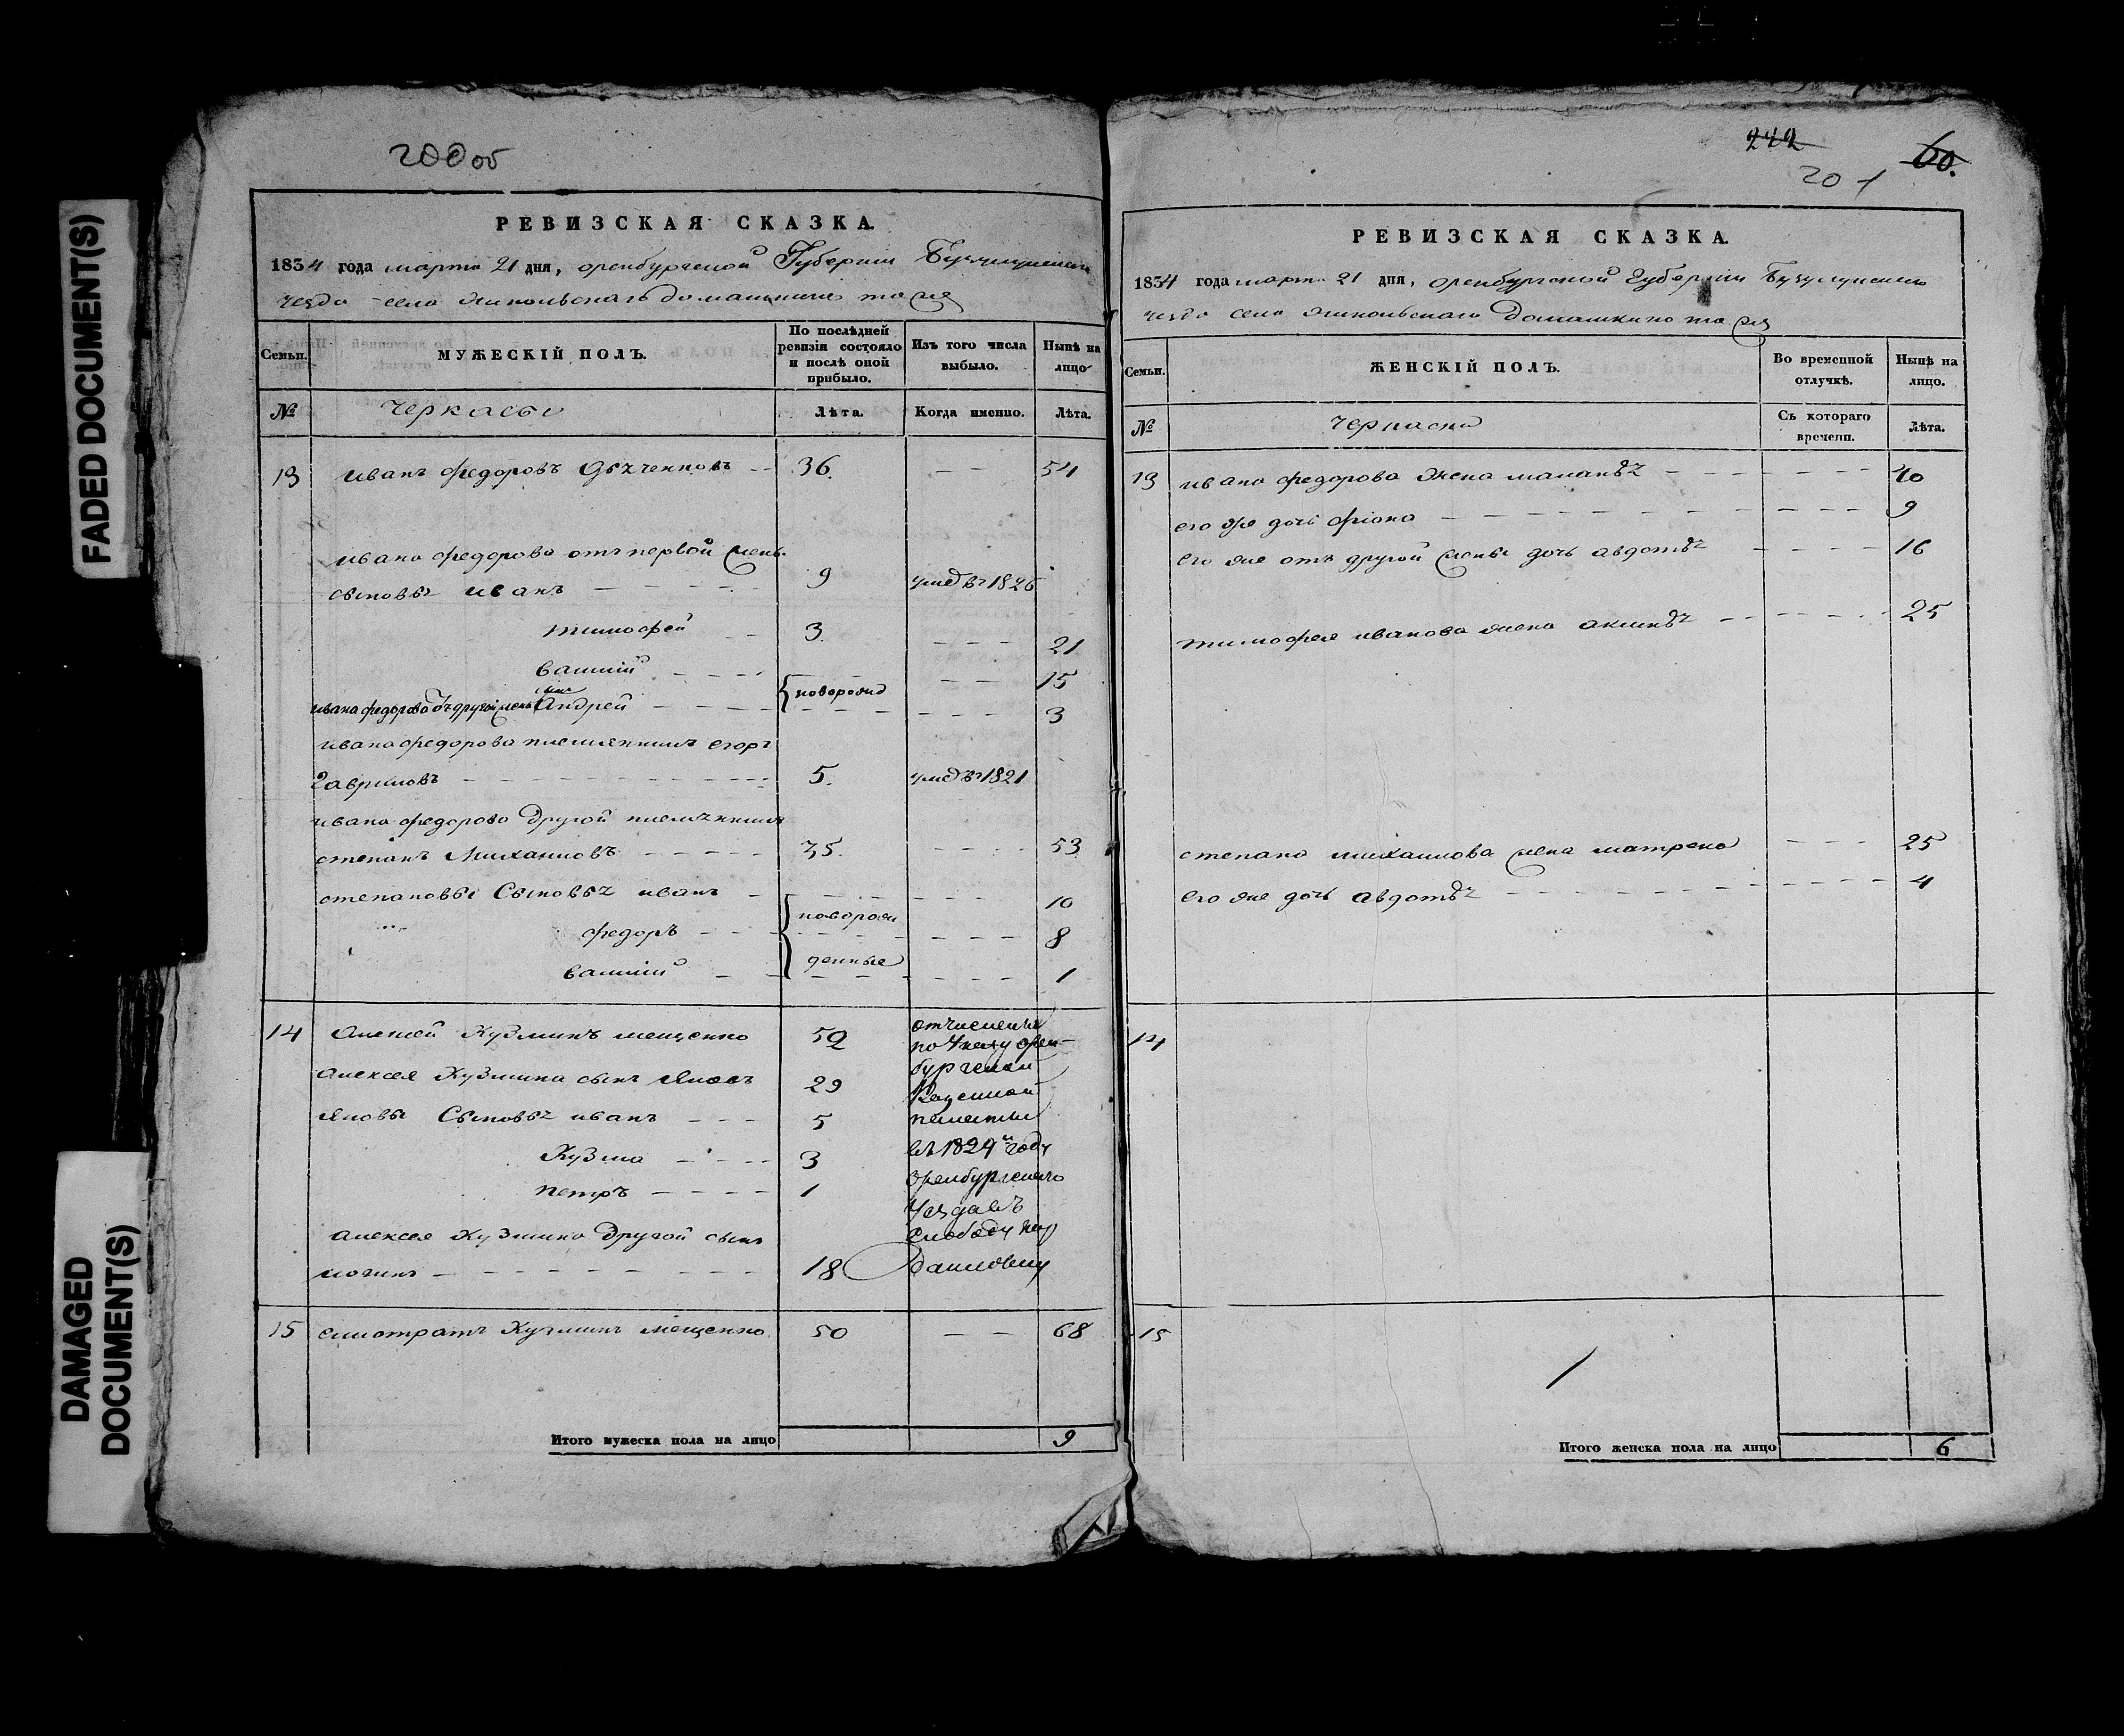 FADED DOCUMENT(S)
DAMAGED
DOCUMENT(S)
200 об
РЕВИЗСКАЯ СКАЗКА.
1834 года марта 21 дня, оренбургской Губернии Бузулуцкаго
уезда села
МУЖЕСКІЙ ПОЛЪ.
Семьи.
По послѣдней
ревизіи состояло
и послѣ оной
прибыло.
Изъ того числа
выбыло.
Нынѣ на
лицо
№
черкасы
Лѣта.
Когда именно.
Лѣта.
13 иванъ федоровъ 36. 54
ивана федорова отъ первой жены
сыновья иванъ 9 умеръ 1826
тимофей 3 21
василий 15
новорожд
ивана федорова отъ другой жены сынъ Андрей 3
ивана федорова племянникъ егоръ
Гавриловъ 5. умеръ 1821
ивана федорова другой племянникъ
степанъ Михаиловъ 35 53
степановы Сыновья иванъ 10
новорож
федоръ 8
денные
василий 1
14 Алексей Кузминъ мещенко 52 отчислены
по указу орен-
бургской
алексея Кузмина сынъ Яковъ 29
Казенной
Яковы Сыновья иванъ 5 палаты
Кузма 3 въ 1824м году
петръ 1 Оренбургскаго
Уезда въ
алексея Кузмина другой сынъ слободу
логинъ 18
15 Кузминъ мещенко 50 68
Итого мужеска пола на лицо 9
242
60.
201
РЕВИЗСКАЯ СКАЗКА.
1834 года марта 21 дня, оренбургской Губерніи Бузулуцкаго
уезда села Домашкино тожъ
Семьи.
ЖЕНСКІЙ ПОЛЪ.
Во временной
отлучкѣ.
Нынѣ на
лицо.
№
черкаски
Съ котораго
времени.
Лѣта.
13 ивана федорова жена маланья 40
его же дочь 9
его же отъ другой жены дочь авдотья 16
тимофея иванова жена аксинья 25
степана михаилова жена матрена 25
его же дочь авдотья 4
14
15
Итого женска пола на лицо 6